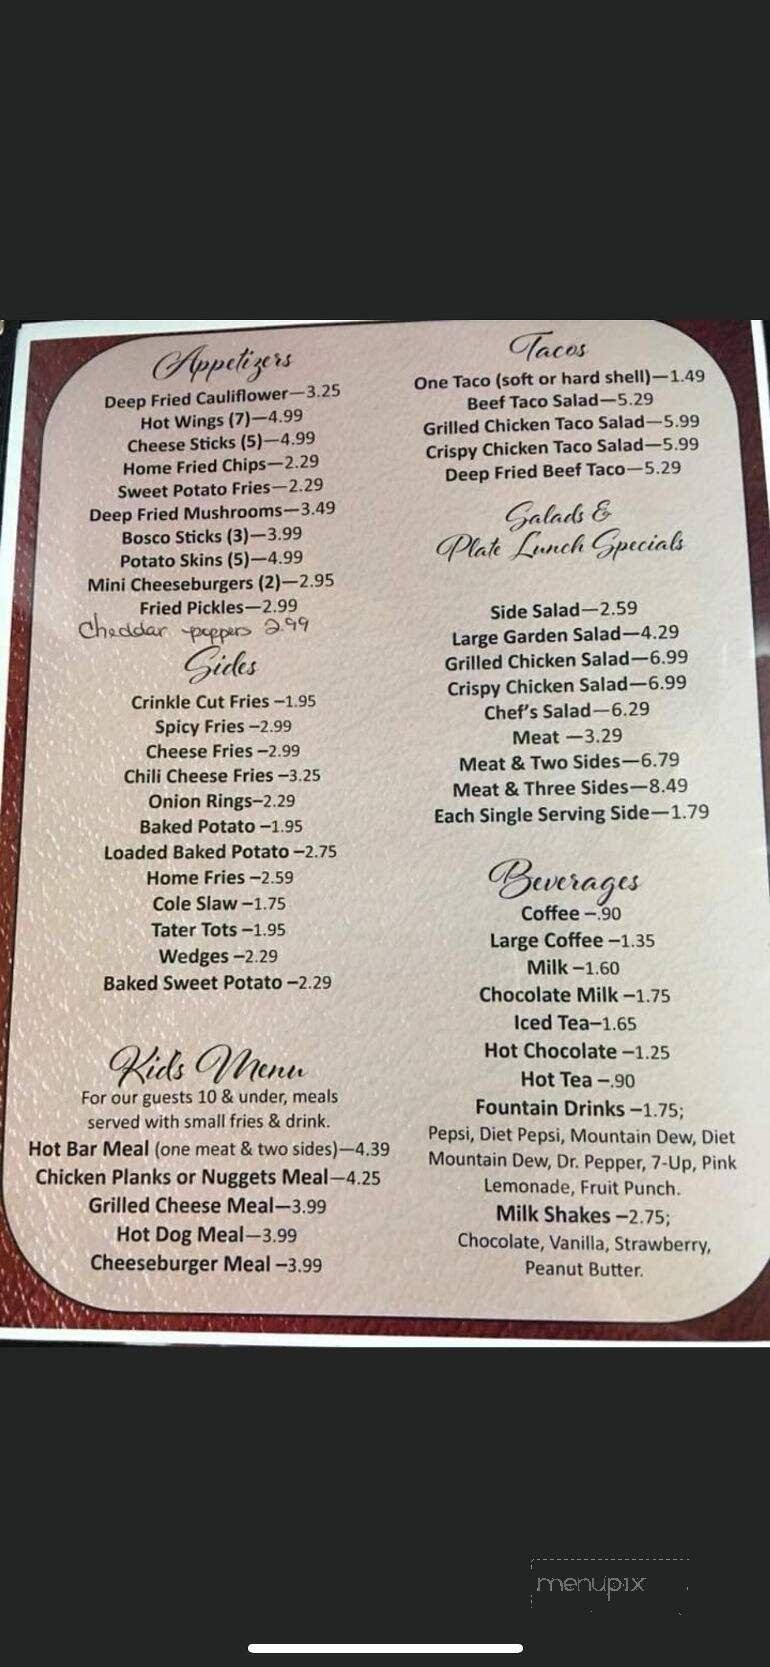 Appetizers
Deep Fried Cauliflower—3.25
Hot Wings (7)—4.99
Cheese Sticks (5)—4.99
Home Fried Chips—2.29
Sweet Potato Fries—2.29
Deep Fried Mushrooms—3.49
Bosco Sticks (3)—3.99
Potato Skins (5)—4.99
Mini Cheeseburgers (2)—2.95
Fried Pickles—2.99
Cheddar poppers 2.99
Sides
Crinkle Cut Fries –1.95
Spicy Fries –2.99
Cheese Fries –2.99
Chili Cheese Fries –3.25
Onion Rings–2.29
Baked Potato –1.95
Loaded Baked Potato –2.75
Home Fries –2.59
Cole Slaw –1.75
Tater Tots –1.95
Wedges –2.29
Baked Sweet Potato –2.29
Kid's Menu
For our guests 10 & under, meals
served with small fries & drink.
Hot Bar Meal (one meat & two sides)—4.39
Chicken Planks or Nuggets Meal—4.25
Grilled Cheese Meal—3.99
Hot Dog Meal—3.99
Cheeseburger Meal –3.99
Tacos
One Taco (soft or hard shell)—1.49
Beef Taco Salad—5.29
Grilled Chicken Taco Salad—5.99
Crispy Chicken Taco Salad—5.99
Deep Fried Beef Taco—5.29
Salads &
Plate Lunch Specials
Side Salad—2.59
Large Garden Salad—4.29
Grilled Chicken Salad—6.99
Crispy Chicken Salad—6.99
Chef's Salad—6.29
Meat —3.29
Meat & Two Sides—6.79
Meat & Three Sides—8.49
Each Single Serving Side—1.79
Beverages
Coffee –.90
Large Coffee –1.35
Milk –1.60
Chocolate Milk –1.75
Iced Tea–1.65
Hot Chocolate –1.25
Hot Tea –.90
Fountain Drinks –1.75;
Pepsi, Diet Pepsi, Mountain Dew, Diet
Mountain Dew, Dr. Pepper, 7-Up, Pink
Lemonade, Fruit Punch.
Milk Shakes –2.75;
Chocolate, Vanilla, Strawberry,
Peanut Butter.
menupix